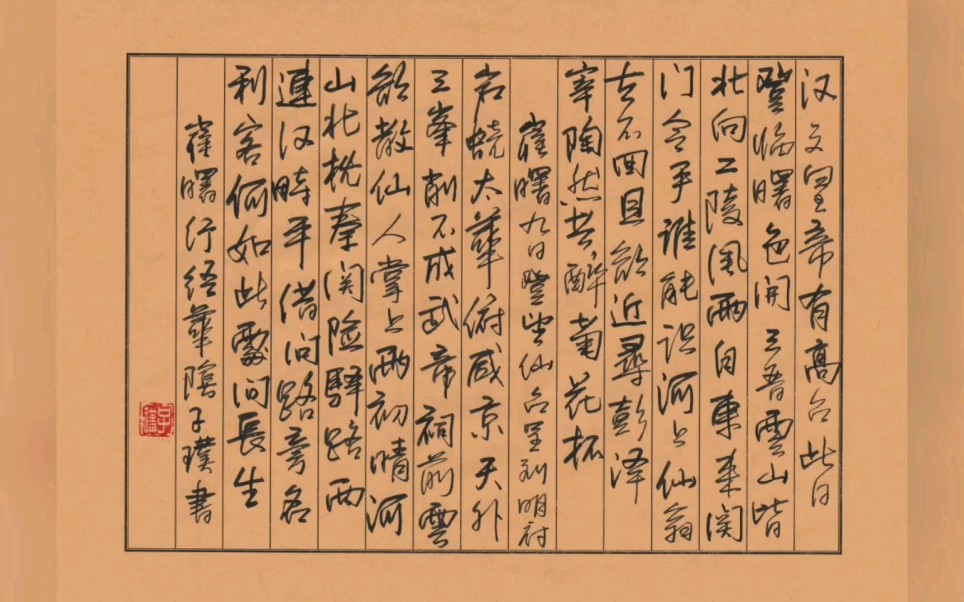 汉文皇帝有高台此日
登临曙色開三晋雲山皆
北向二陵風雨自東来関
门令尹谁能识河上仙翁
去不回且欲近尋彭泽
宰陶然共醉菊花杯
崔曙九日登望仙台呈刘明府
岧峣太華俯咸京天外
三峯削不成武帝祠前雲
欲散仙人掌上雨初晴河
山北枕秦関险驿路西
連汉畤平借问路旁名
利客何如此處问長生
崔曙行经華陰子璞書
子璞